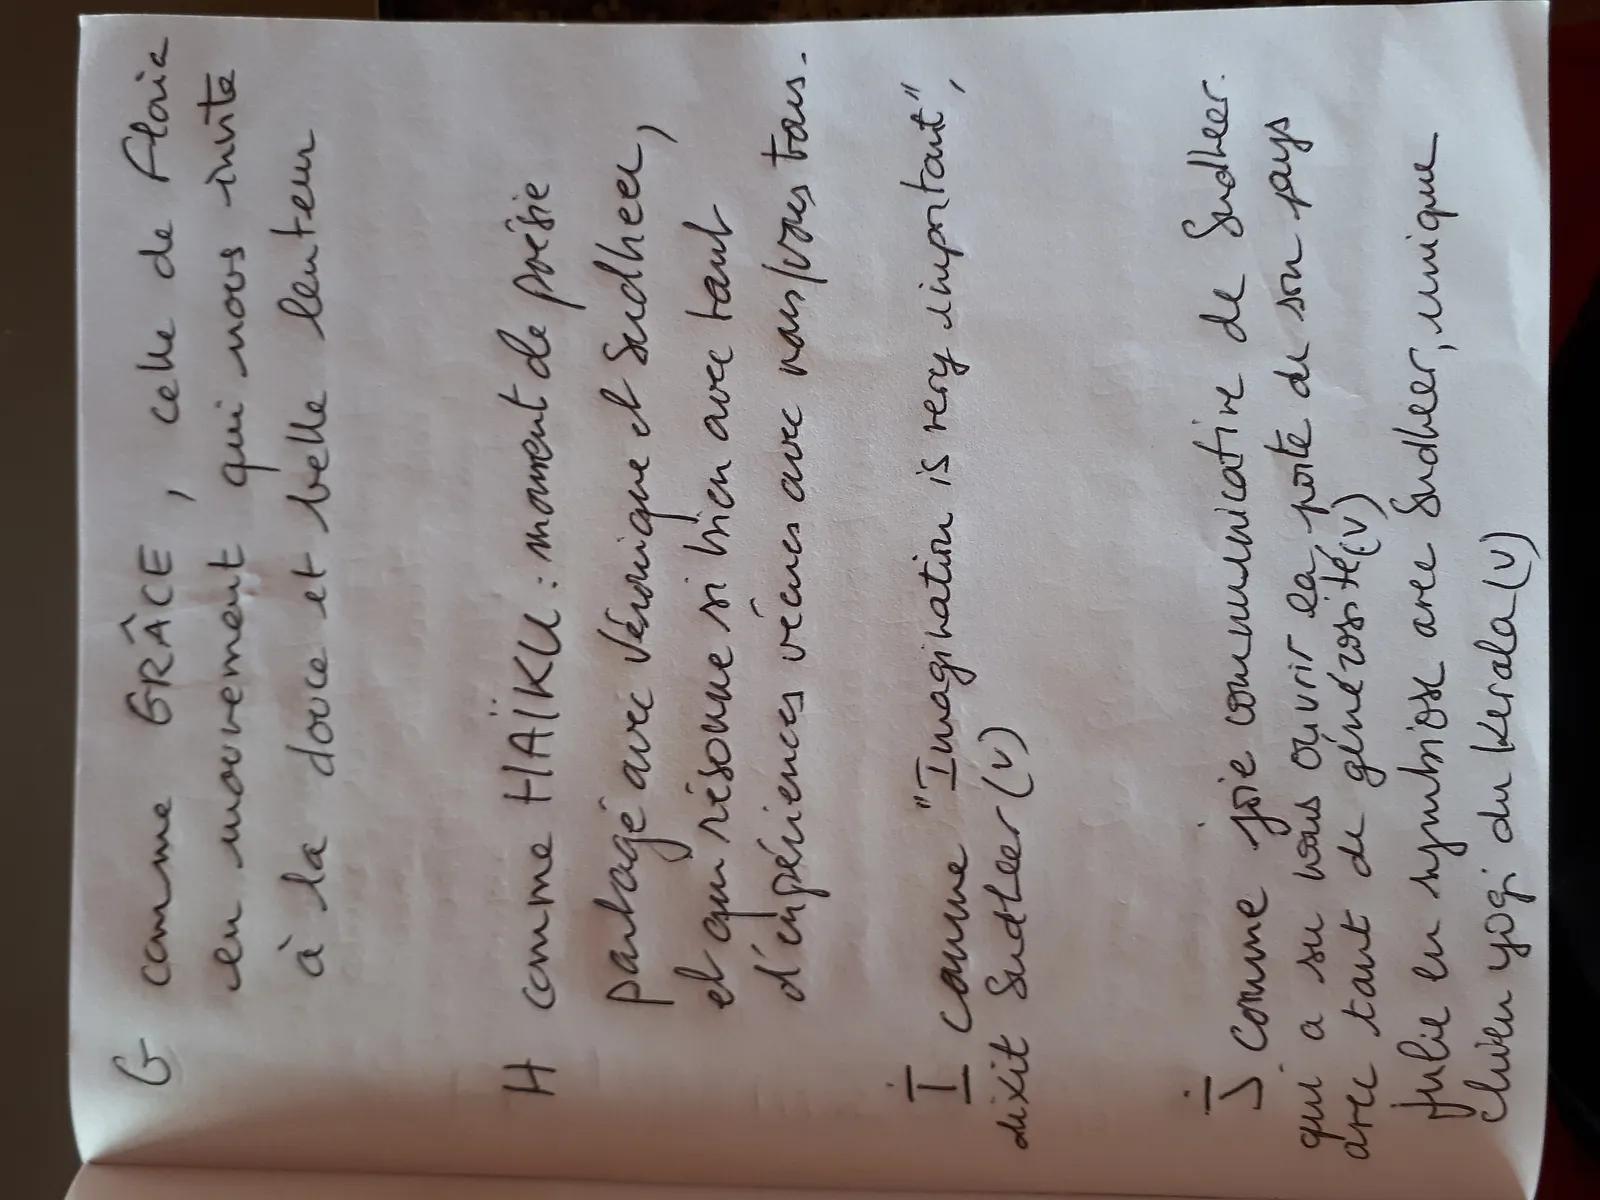 G comme GRÂCE, celle de Floria
en mouvement qui nous invite
à la douce et belle lenteur
H comme HAÏKU : moment de poésie
partagé avec Véronique et Sudheer,
et qui résonne si bien avec tant
d'expériences vécues avec nous/vous tous.
I comme "Imagination is very important",
dixit Sudheer (v)
J comme joie communicative de Sudheer.
qui a su nous ouvrir la porte de son pays
avec tant de générosité (v)
Julie en symbiose avec Sudheer, unique
chien yogi du Kerala (v)